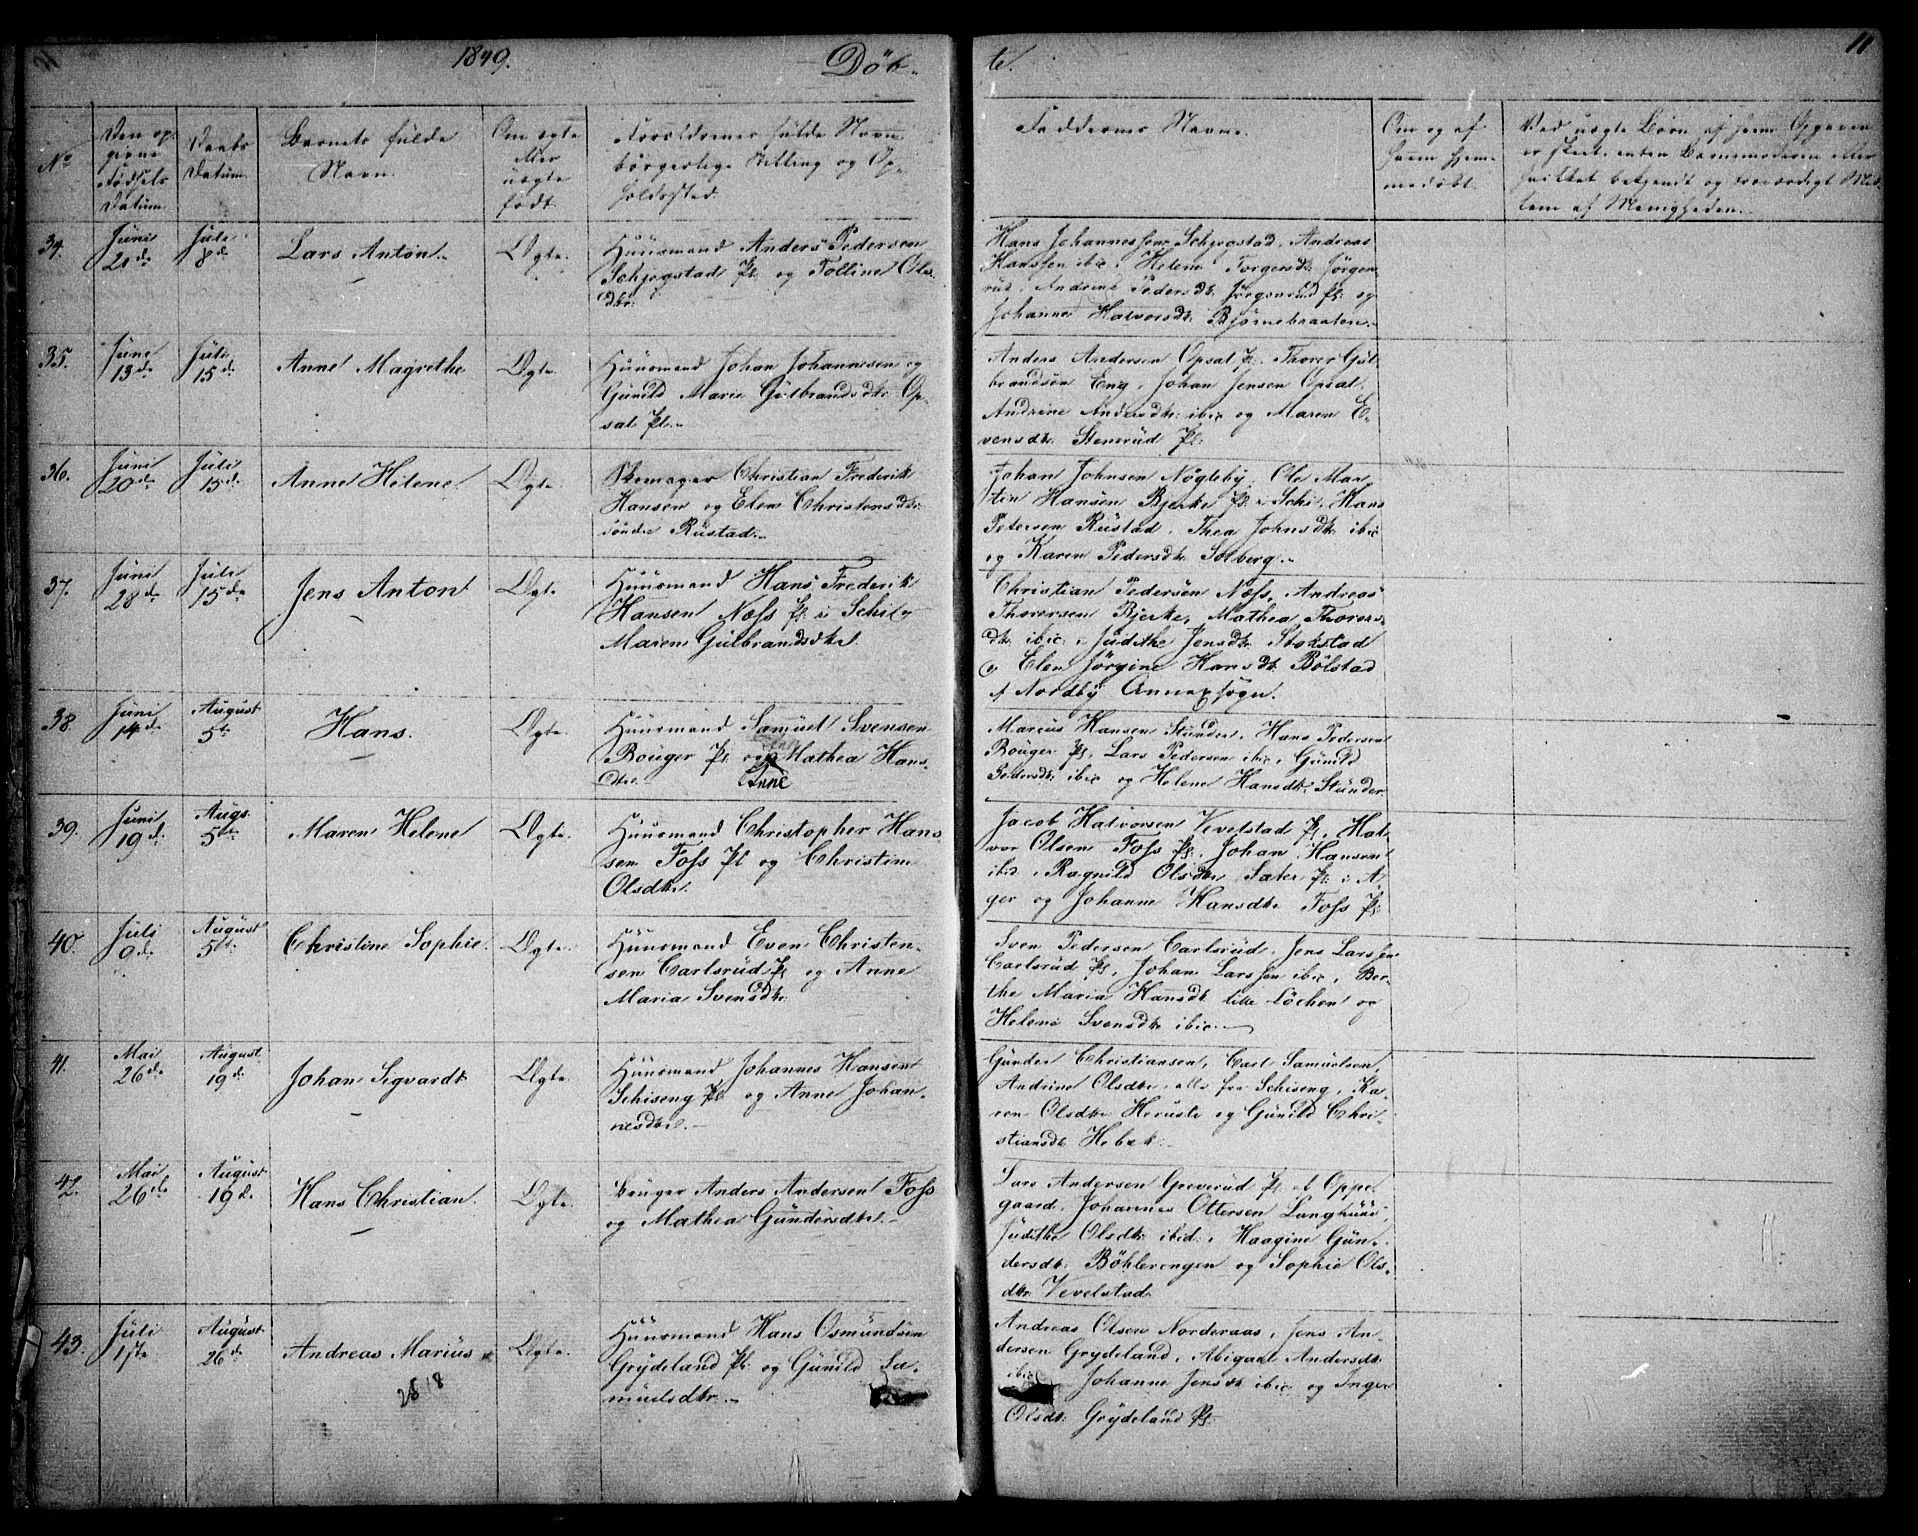 1849.
Döb-
te.
11
No
Den op-
givne
Fødsels
Datum.
Daabs
Datum.
Barnets fulde
Navn.
Om ægte
eller
uægte
født.
Forældrenes fulde Navn
borgerlige Stilling og Op-
holdssted.
Faddernes Navne.
Om og af
hvem hjem-
medøbt.
Ved uægte Børn af hvem Opgaven
er skeet, enten Barnemoderen eller
hvilket bekjendt og troværdigt Med-
lem af Menigheden.
34.
Juni
21de
Juli
8de
Lars Anton.
Ægte.
Huusmand Anders Pedersen
Schjegstad Pl. og Tolline Ols-
dtr.
Hans Johannessen Schjegstad, Andreas
Hanssen ibid, Helene Torgersdt. Jörgen-
rud, Andrine Pedersdt. Jörgenrud Pl. og
Johanne Halvorsdt. Bjørnebraaten.
35.
June
13de
Juli
15de
Anne Magrethe
Ægte.
Huusmand Johan Johannesen og
Gunild Marie Gulbrandsdtr. Op-
sal Pl.
Anders Andersen Opsal Pl. Thorer Gul-
brandsön Eng, Johan Jensen Opsal,
Andrine Andersdtr. ibid og Maren E-
vensdtr. Stenerüd Pl.
36.
Juni
20de
Juli
15de
Anne Helene
Ægte.
Skomager Christian Frederik
Hansen og Elen Christensdtr.
söndre Rüstad.
Johan Johnsen Nögleby, Ole Mar-
tin Hansön Bjerke Pl. i Schi, Hans
Petersen Rüstad, Thea Johnsdt. ibid
og Karen Pedersdt. Solberg.
37.
Juni
28de
Juli
15de
Jens Anton
Ægte.
Huusmand Hans Frederik
Hansen Næss Pl. i Schi og
Maren Gülbrandsdtr.
Christian Pedersen Næss, Andreas
Thorersen Bjerke, Mathea Thorers-
dt. ibid, Judithe Jensdt. Stokstad
og Elen Jörgine Hansdt. Bölstad
af Nordby Annexsogn.
38.
Juni
14de
August
5te
Hans.
Ægte.
Huusmand Samuel Svensen
Bouger Pl. og Mathea Hans-
dtr. Anne
Marius Hansen Stunder, Hans Pedersen
Bouger Pl. Lars Pedersen ibid, Gunild
Pedersdt. ibid og Helene Hansdt. Stunder
39.
Juni
19de
Augs.
5te
Maren Helene
Ægte.
Huusmand Christopher Hans-
sen Foss Pl og Christine
Olsdtr.
Jacob Halvorsen Vevelstad Pl., Hal-
vor Olsen Foss Pl. Johan Hansen
ibid, Ragnild Olsdtr. Sæter Pl. i A-
ger og Johanne Hansdtr. Foss Pl.
40.
Juli
9de
August
5te
Christine Sophie.
Ægte.
Huusmand Even Christen-
sen Carlsrud Pl og Anne
Maria Svensdtr.
Sven Pedersen Carlsrud, Jens Larssen
Carlsrud Pl, Johan Larssen ibid, Ber-
the Maria Hansdt. lille Löchen og
Helene Svensdt. ibid.
41.
Mai
26de
August.
19de
Johan Sigvardt
Ægte.
Huusmand Johannes Hansen
Schiseng Pl. og Anne Johan-
nesdtr.
Gunder Christiansen, Carl Samuelsen,
Andrine Olsdtr. alle fra Schiseng, Ka-
ren Olsdtr. Heruste og Gunild Chri-
stiansdt. Hebæk.
42.
Mai
26de
August
19de
Hans Christian.
Ægte.
Bruger Anders Andersen Foss
og Mathea Gundersdtr.
Lars Andersen Greverud Pl. af Oppe-
gaard, Johannes Ottersen Langhuus,
Judithe Olsdtr. ibid, Haagine Gun-
dersdt. Böhlerengen og Sophie Ols-
dtr. Vevelstad.
43.
Juli
1ste
August
26de
Andreas Marius
2818
Ægte.
Huusmand Hans Osmundsen
Grydeland Pl. og Gunild Sa-
muelsdtr.
Andreas Olsen Norderaas, Jens An-
dersen Grydeland, Abigael Andersdtr.
ibid Johanne Jensdt. ibid og Inger
Olsdt. Grydeland Pl.